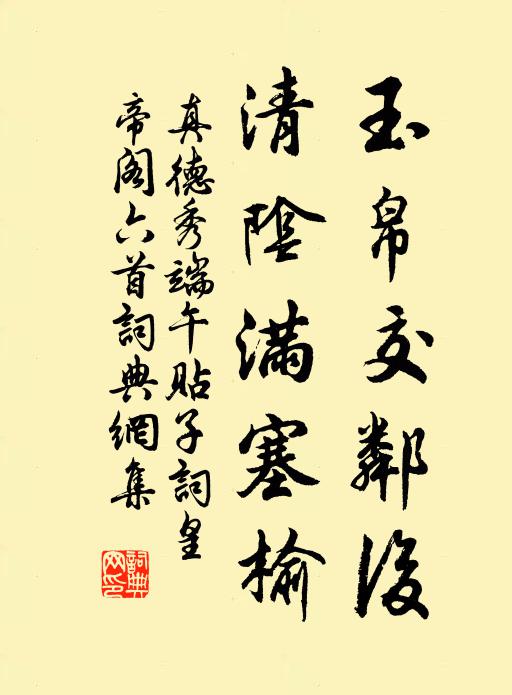 玉帛交鄰後
清陰滿塞榆
真德秀端午貼子詞皇
帝閣六首詞典網集
詞典網印